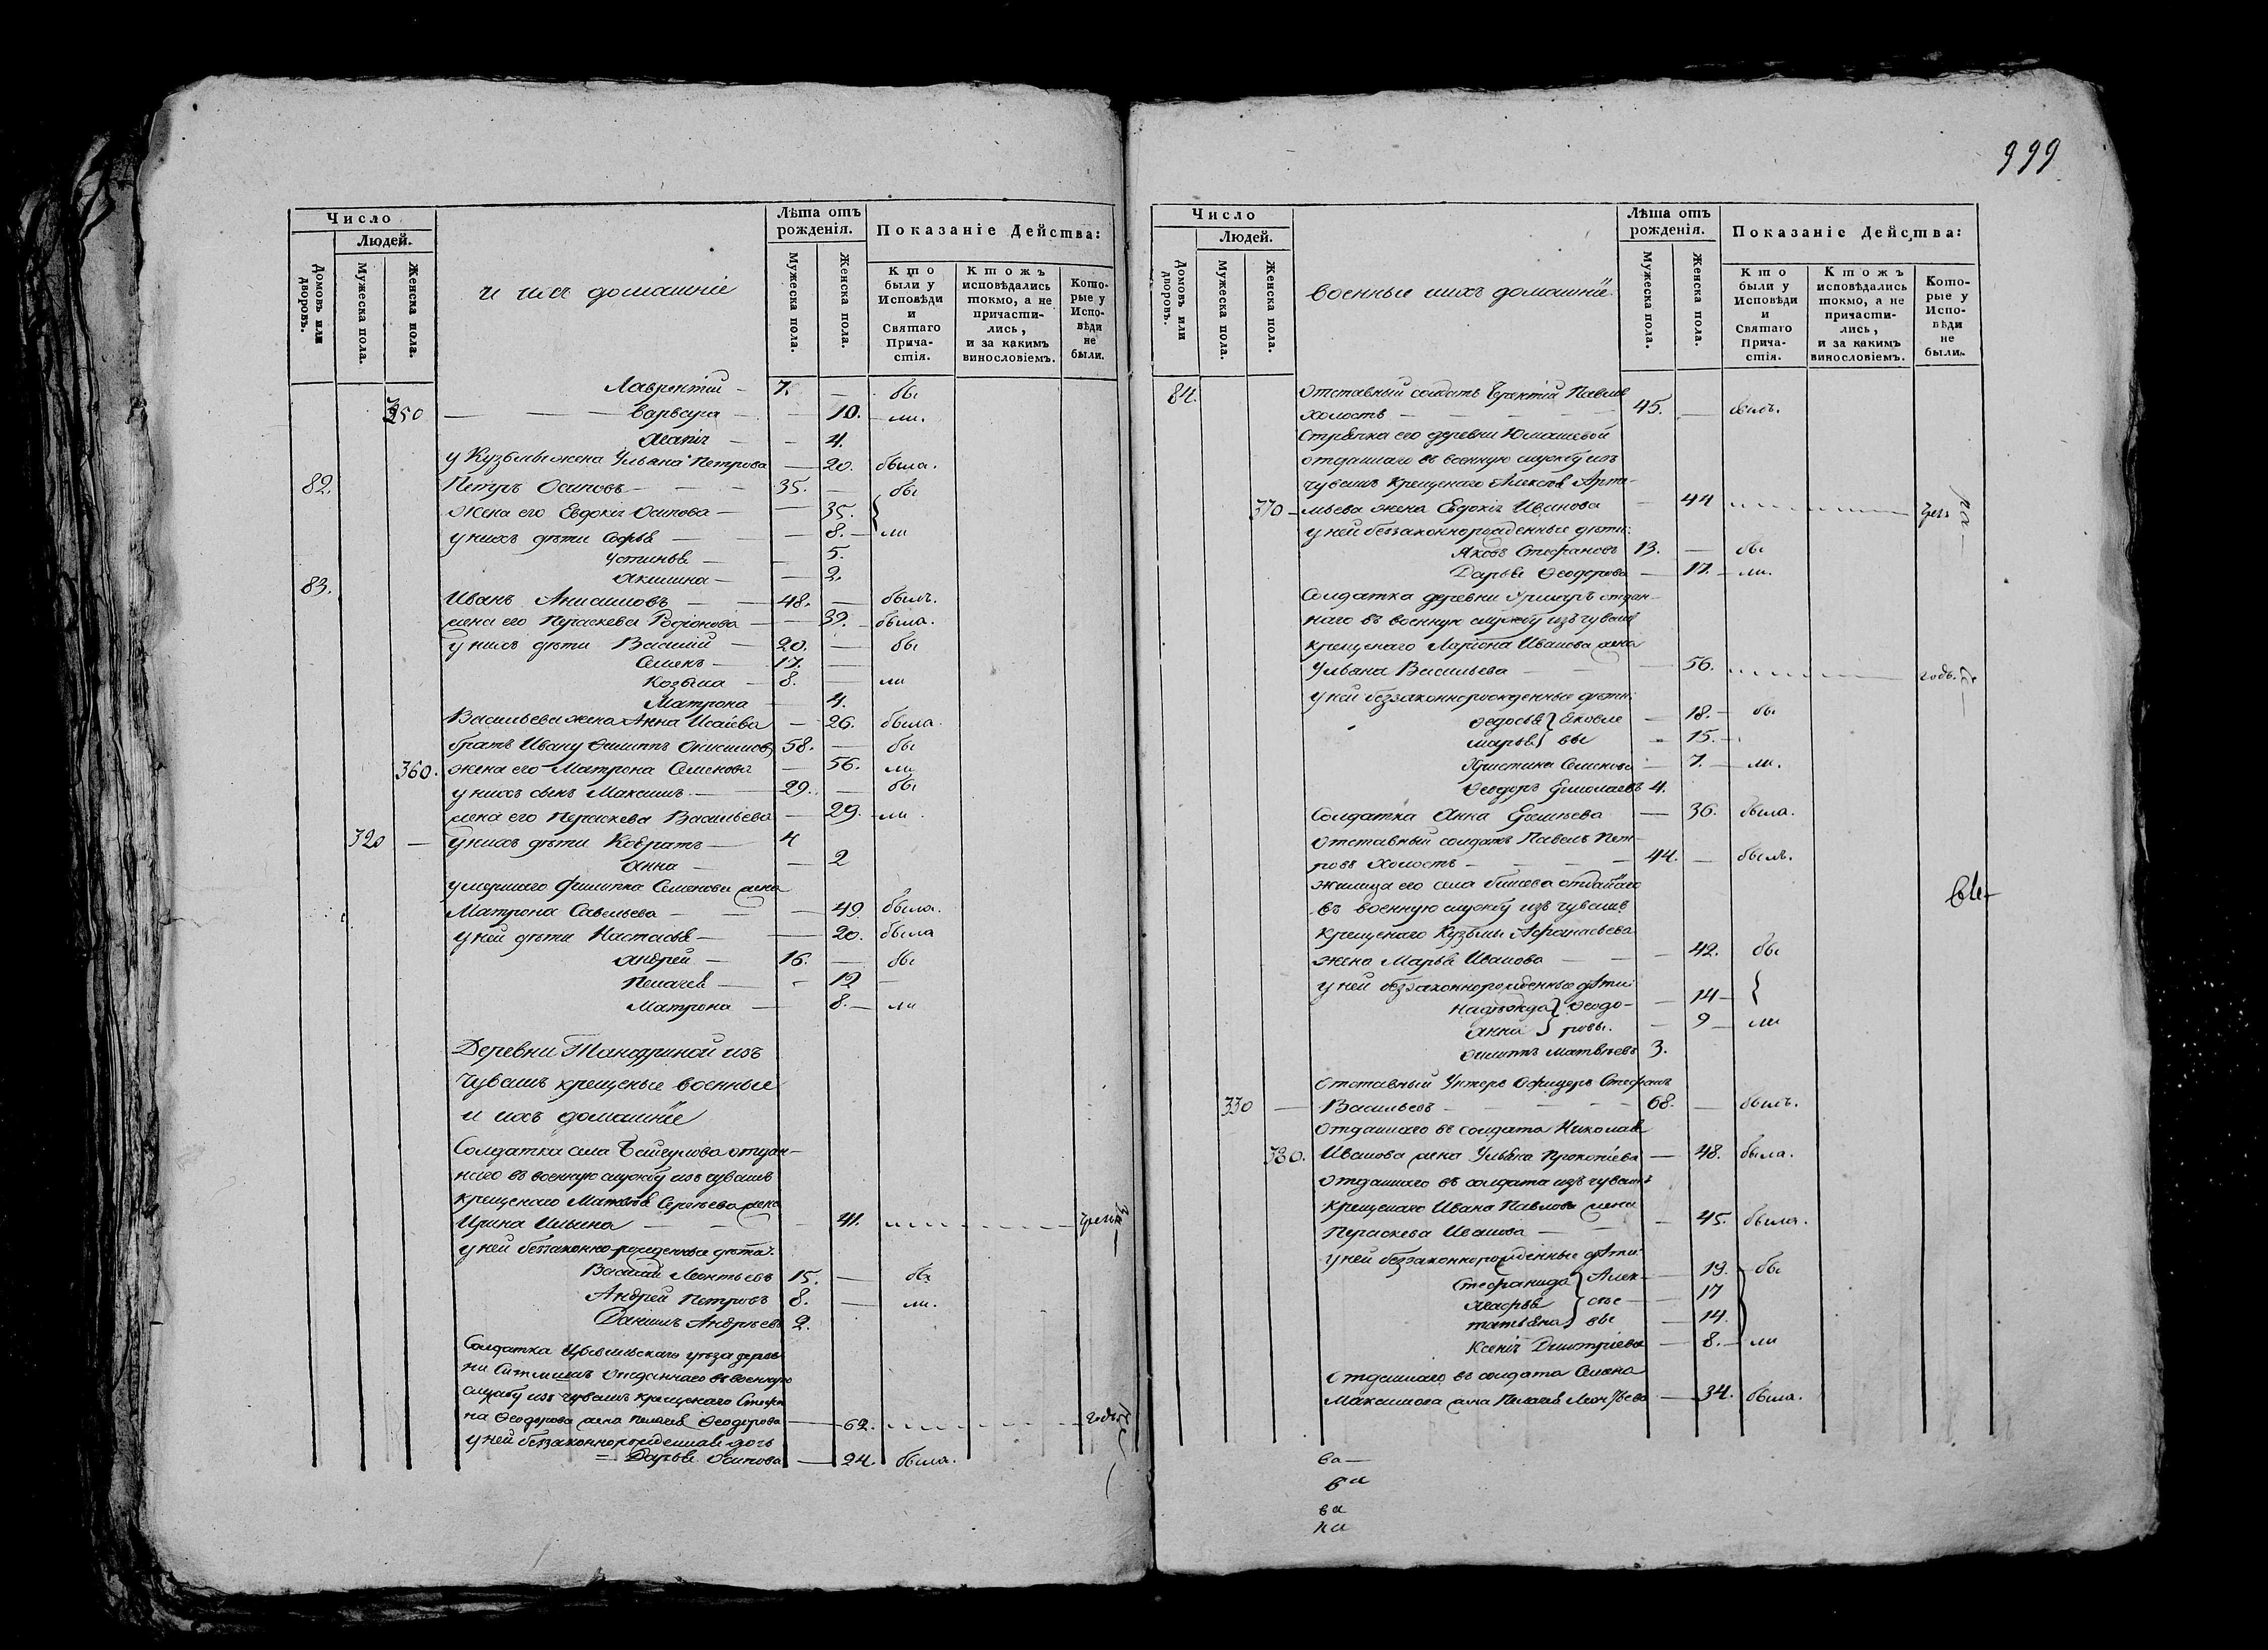 999
Число
Людей.
Домовъ или дворовъ.
Мужеска пола.
Женска пола.
и ихъ домашніе
Лѣта отъ рожденія.
Мужеска пола.
Женска пола.
Показаніе Действа:
Кто были у Исповѣди и Святаго Причастія.
Ктожъ исповѣдались токмо, а не причастились, и за какимъ винословіемъ.
Которые у Исповѣди не были.
Лаврентій — 7. — бы
350 — Варвара — 10. — ли.
4.
у Кузьмы жена Ульяна Петрова — 20. была.
82. Петръ Осиповъ — 35. — бы
жена его Евдокія Осипова — 35.
у нихъ дѣти Софья — 8. — ли
Устинья — 5.
Акилина — 2.
83. Иванъ Анисимовъ — 48. — былъ.
жена его Параскева Родіонова — 39. была.
у нихъ дѣти Василій — 20. — бы
Семенъ — 17. —
Козьма — 8. — ли
Матрона — 4.
Васильева жена Анна Исаева — 26. была.
братъ Ивану Филиппъ Онисимовъ 58. — бы
360. жена его Матрона Семенова — 56. ли
у нихъ сынъ Максимъ — 29. — бы
жена его Параскева Васильева — 29. ли.
320 — у нихъ дѣти Кодратъ — 4
Анна — 2
умершаго Филиппа Семенова жена
Матрона Савельева — 49. была.
у ней дѣти Настасья — 20. была
Андрей — 16. — бы
Пелагея — 12 —
Матрона — 8. — ли
Деревни изъ
чувашъ крещеные военные
и ихъ домашніе
Солдатка села отдан-
наго въ военную службу изъ чувашъ
крещенаго Сергеева жена
Ирина Ильина — 41.
у ней беззаконнорожденные дѣти:
Василій Леонтьевъ 15. — бы
Андрей Петровъ 8. — ли.
Даніилъ Андреевъ 2.
Солдатка Цывильскаго уѣзда дерев-
ни отданнаго въ военную
службу изъ чувашъ крещенаго Стефа
на Ѳеодорова жена Пелагея Ѳеодорова — 62.
у ней беззаконнорожденная дочь
= Дарья Осипова — 24. была.
Число
Людей.
Домовъ или дворовъ.
Мужеска пола.
Женска пола.
военные и ихъ домашніе.
Лѣта отъ рожденія.
Мужеска пола.
Женска пола.
Показаніе Действа:
Кто были у Исповѣди и Святаго Причастія.
Ктожъ исповѣдались токмо, а не причастились, и за какимъ винословіемъ.
Которые у Исповѣди не были.
84. Отставный солдатъ Павловъ
холостъ — 45. — былъ.
Стряпка его деревни Юмашевой
отданнаго въ военную службу изъ
чувашъ крещенаго Алексѣя Арте-
370 — мьева жена Евдокія Иванова — 44
у ней беззаконнорожденные дѣти:
Яковъ Стефановъ 13. — бы
Дарья Ѳеодорова — 11. — ли.
Солдатка деревни отдан-
наго въ военную службу изъ чувашъ
крещенаго Ларіона Иванова жена
Ульяна Васильева — 56.
у ней беззаконнорожденные дѣти:
Ѳедосья } Яковле — 18. — бы
Марья } вы — 15. —
Христина Семенова — 7. — ли.
Ѳеодоръ 4.
Солдатка Анна — 36. была.
Отставный солдатъ Павелъ Пет-
ровъ холостъ — 44. — былъ.
жилица его села отданнаго
въ военную службу изъ чувашъ
крещенаго Кузьмы Афанасьева
жена Марья Иванова — 42. бы
у ней беззаконнорожденные дѣти:
Надѣжда } Ѳеодо- — 14 —
Анна } ровы. — 9 — ли
Филиппъ Матвѣевъ 3.
Отставный Унтеръ Офицеръ Стефанъ
330 — Васильевъ — 68. — былъ.
отданнаго въ солдата Николая
380. Иванова жена Ульяна Прокопіева — 48. была.
отданнаго въ солдата изъ чувашъ
крещенаго Ивана Павлова жена
Параскева Иванова — 45. была.
у ней беззаконнорожденные дѣти:
Стефанида } Алек- — 19. — бы
Агафья } сѣе — 17
Татьяна } вы — 14.
Ксенія Дмитріева — 8. — ли
отданнаго въ солдата Семена
Максимова жена Пелагея Леонтьева — 34. была.
ва —
ва
ва
на